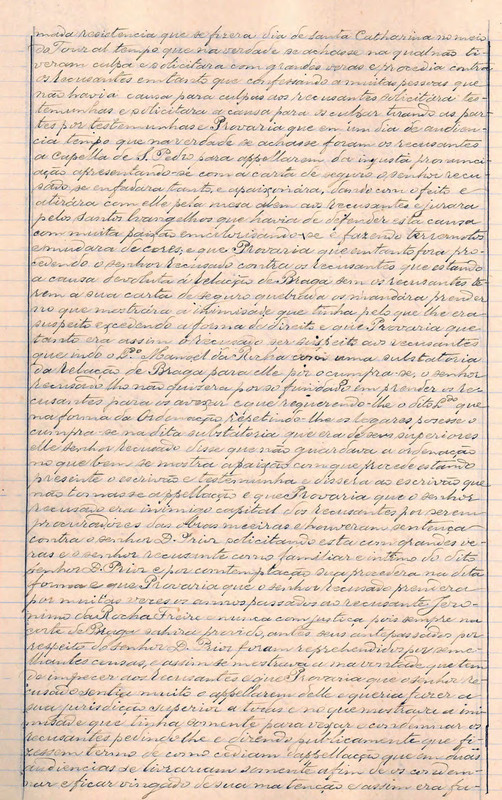 mada resistencia que se fizera dia de Santa Catharina no meio
do Toural tempo que na verdade se achasse na qual não ti-
veram culpa e solicitara com grandes veras e procedia contra
os recusantes emtanto que confessando a muitas pessoas que
não havia causa para culpar aos recusantes solicitara tes-
temunhas e solicitara a causa para os culpar tirando as par-
tes por testemunhas e Provaria que em um dia de audien-
cia tempo que na verdade se achasse foram os recusantes
a Capella de S. Pedro para appellarem da injusta pronunci-
ação apresentando-se com a carta de seguro o senhor recu-
sado se enfadara tanto e apaixonara, dando com o feito e
atirara com elle pela mesa alem aos recusantes e jurara
pelos Santos Evangelhos que havia de defender esta causa
com muita paixão encolorisando-se e fazendo terramotos
e mudara de cores, e que Provaria que emtanto fora pro-
cedendo o senhor recusado contra os recusantes que estando
a causa devoluta á Relação de Braga sem os recusantes te-
rem a sua carta de seguro quebrada os mandára prender
no que mostrára a inimisade que tinha pelo que lhe era
suspeito excedendo a forma de direito e que Provaria que
tanto era assim o recusado ser suspeito aos recusantes
que indo o Ldo. Manoel da Cunha com uma substatoria
da Relação de Braga para elle pôr o cumpra-se, o senhor
recusado lho não quizera pôr so fundado em prender os re-
cusantes para os avexar e que requerendo-lhe o dito Ldo. que
na forma da Ordenação repetindo-lhe os logares pozesse o
cumpra-se na dita substatoria que era de seus superiores
elle senhor recusado disse que não guardava a ordenação
no que bem se mostra a paixão com que procede estando
presente o escrivão e testemunha e dissera ao escrivão que
não tomasse appellação e que Provaria que o senhor
recusado era inimigo capital dos recusantes por serem
procuradores das obras meeiras e houveram sentença
contra o senhor D. Prior solicitando esta com grandes ve-
ras e o senhor recusante como familiar e intimo do dito
senhor D. Prior e por comtemplação sua procedera na dita
forma e que Provaria que o senhor recusado prendera
por muitas vezes os annos passados ao recusante Jero-
nimo da Rocha Freire e nunca com justiça pois sempre na
corte de Braga sahira provido, antes seus antepassados por
respeito do senhor D. Prior foram reprehendidos por seme-
lhantes causas, e assim se mostrava a má vontade que tem
de impecer aos recusantes e que Provaria que o senhor re-
cusado sentia muito o appellarem delle e queria fazer a
sua jurisdição superior a todas e no que mostrara a ini-
misade que tinha somente para vexar e condemnar os
recusantes pedindo-lhe e dizendo publicamente que fi-
zessem termo de como cediam d'appellação que em duas
audiencias se livrariam somente afim de os condem-
nar e ficar vingado de sua má tenção e assim era fa-